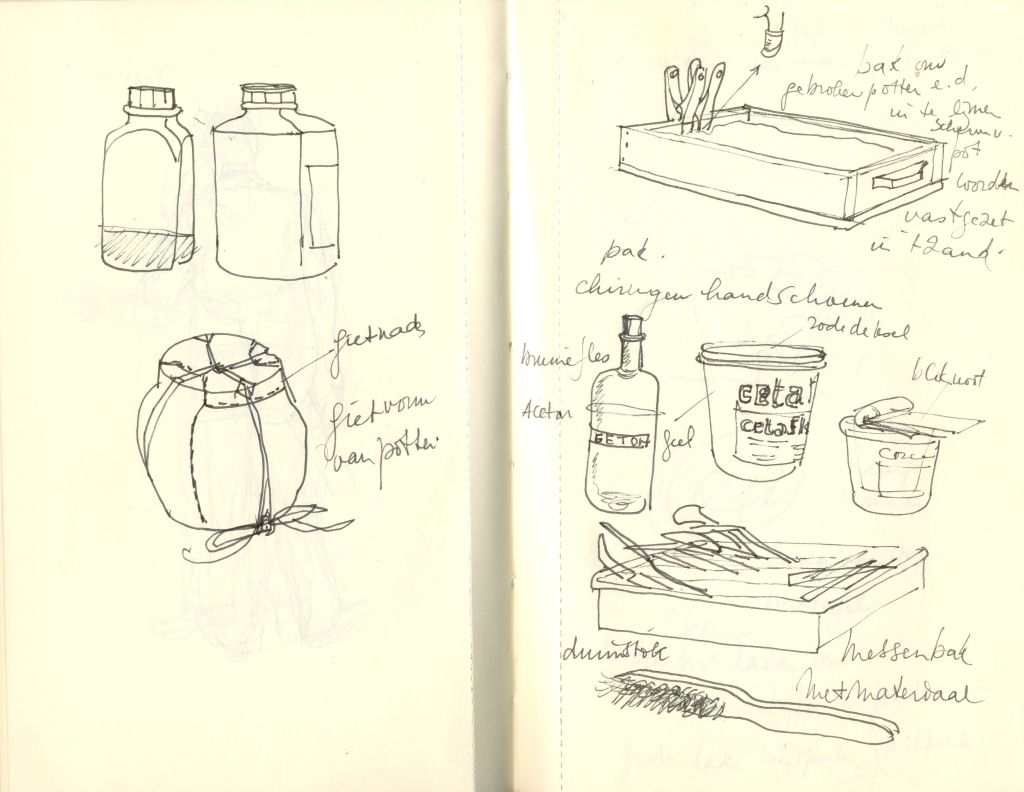 gietnads
gietvorm
van potten
bak om
gebroken potten e.d.
in te lijmen
scherven
pot
worden
vastgezet
in 't zand.
bak.
chirurgen handschoenen
rode deksel
bruine fles
Aceton
geel
ACETON
CETA
cetafix
blik
duimstok
messenbak
met materiaal